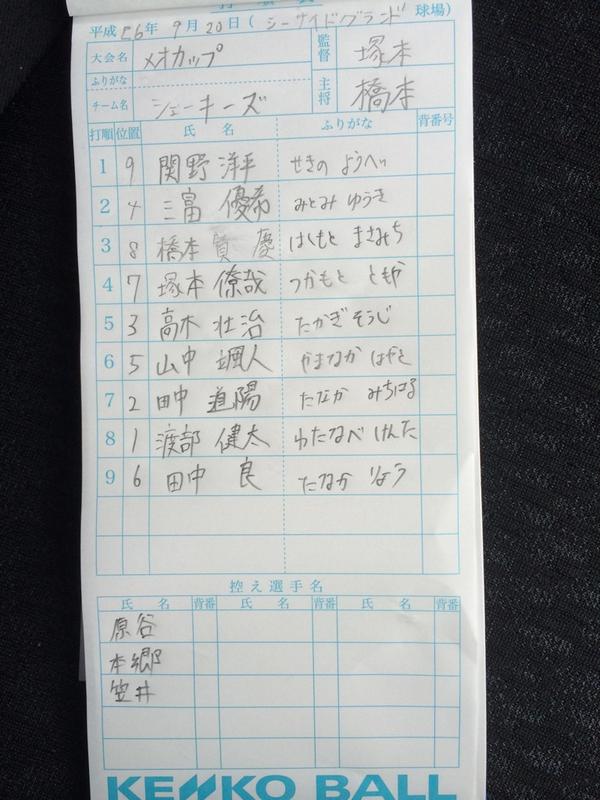 平成26年 9月20日(シーサイドグランド 球場)
大会名 メオカップ 監督 塚本
ふりがな
チーム名 シューキーズ 主将 橋本
打順 位置 氏名 ふりがな 背番号
1 9 関野 洋平 せきの ようへい
2 4 三富 優希 みとみ ゆうき
3 8 橋本 賀慶 はしもと まさみち
4 7 塚本 僚哉 つかもと ともや
5 3 高木 壮治 たかぎ そうじ
6 5 山中 颯人 やまなか はやと
7 2 田中 道陽 たなか みちはる
8 1 渡部 健太 わたなべ けんた
9 6 田中 良 たなか りょう
控え選手名
氏名 背番 氏名 背番 氏名 背番
原谷
本郷
笠井
KENKO BALL